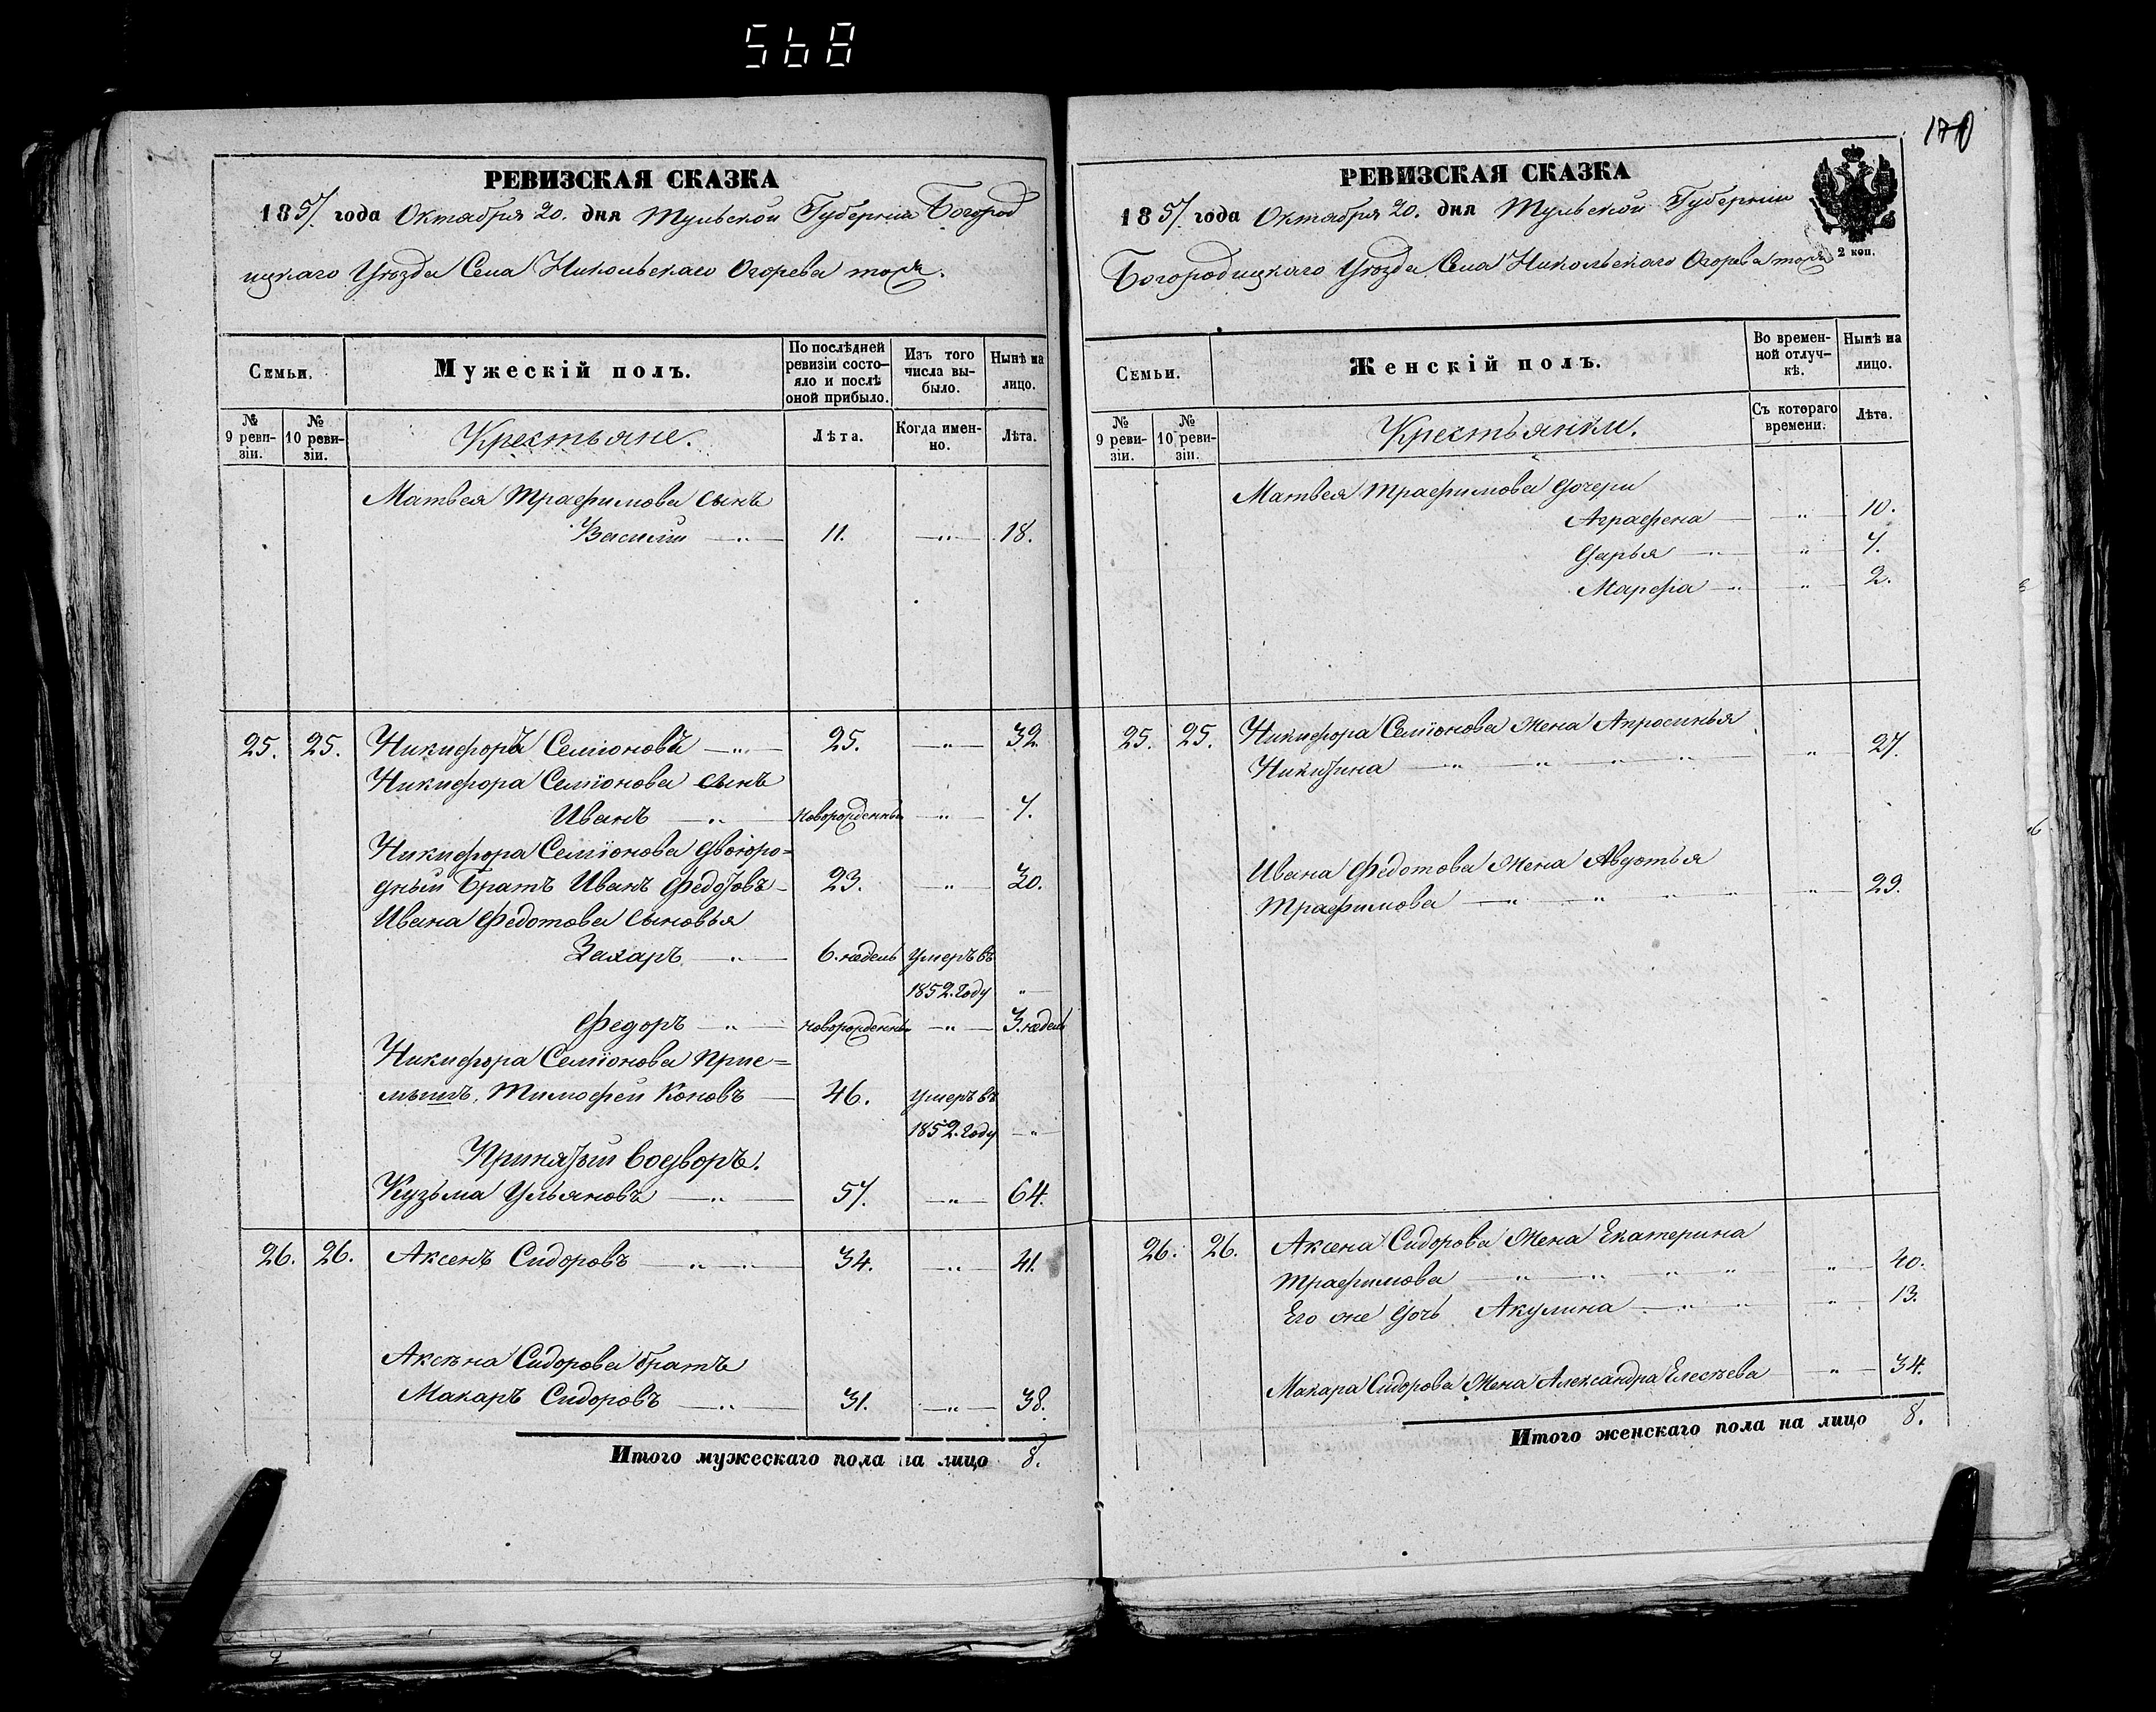 568
РЕВИЗСКАЯ СКАЗКА
1857. года Октября 20. дня Тульской Губерніи Богород
ицкаго Уѣзда Села Никольскаго Огорева тожъ.
Семьи.
Мужескій полъ.
По послѣдней ревизіи состо-
яло и послѣ оной прибыло.
Изъ того числа вы-
было.
Нынѣ на лицо.
№ 9 реви-
зіи.
№ 10 реви-
зіи.
Крестьяне.
Лѣта.
Когда имен-
но.
Лѣта.
Матвея Трафимова сынъ
Василій — „ — 11. — „ — 18.
25. 25. Никифоръ Семіоновъ — „ — 25. — „ — 32.
Никифора Семіонова сынъ
Иванъ — „ — новорожденный — „ — 7.
Никифора Семіонова двоюро=
дный братъ Иванъ Федотовъ — 23. — „ — 30.
Ивана Федотова сыновья
Захаръ — „ — 6. недель умеръ въ
1852. году „ —
Федоръ — „ — новорожденный — „ — 3. недель
Никифора Семіонова прие=
мышъ, Тимофей Коновъ — 46. умеръ въ
1852. году — „ —
Принятый во дворъ.
Кузьма Ульяновъ — „ — 57. — „ — 64.
26. 26. Аксенъ Сидоровъ — „ — „ — 34. — „ — 41.
Аксена Сидорова братъ
Макаръ Сидоровъ — „ — 31. — „ — 38.
Итого мужескаго пола на лицо 8.
170
РЕВИЗСКАЯ СКАЗКА
1857. года Октября 20. дня Тульской Губерніи
2 коп.
Богородицкаго Уѣзда Села Никольскаго Огорева тожъ
Семьи.
Женскій полъ.
Во времен-
ной отлуч-
кѣ.
Нынѣ на лицо.
№ 9 реви-
зіи.
№ 10 реви-
зіи.
Крестьянки.
Съ котораго времени.
Лѣта.
Матвея Трафимова дочери
Аграфена — „ — 10.
Дарья — „ — „ — 7.
Марфа — „ — „ — 2.
25. 25. Никифора Семіонова жена Апросинья
Никитина — „ — „ — „ — „ — „ — 27.
Ивана Федотова жена Авдотья
Трафимова — „ — „ — „ — „ — 29.
26. 26. Аксена Сидорова жена Екатерина
Трафимова — „ — „ — „ — „ — „ — 40.
Его же дочь Акулина — „ — „ — „ — 13.
Макара Сидорова жена Александра Елесѣева — „ — 34.
Итого женскаго пола на лицо 8.